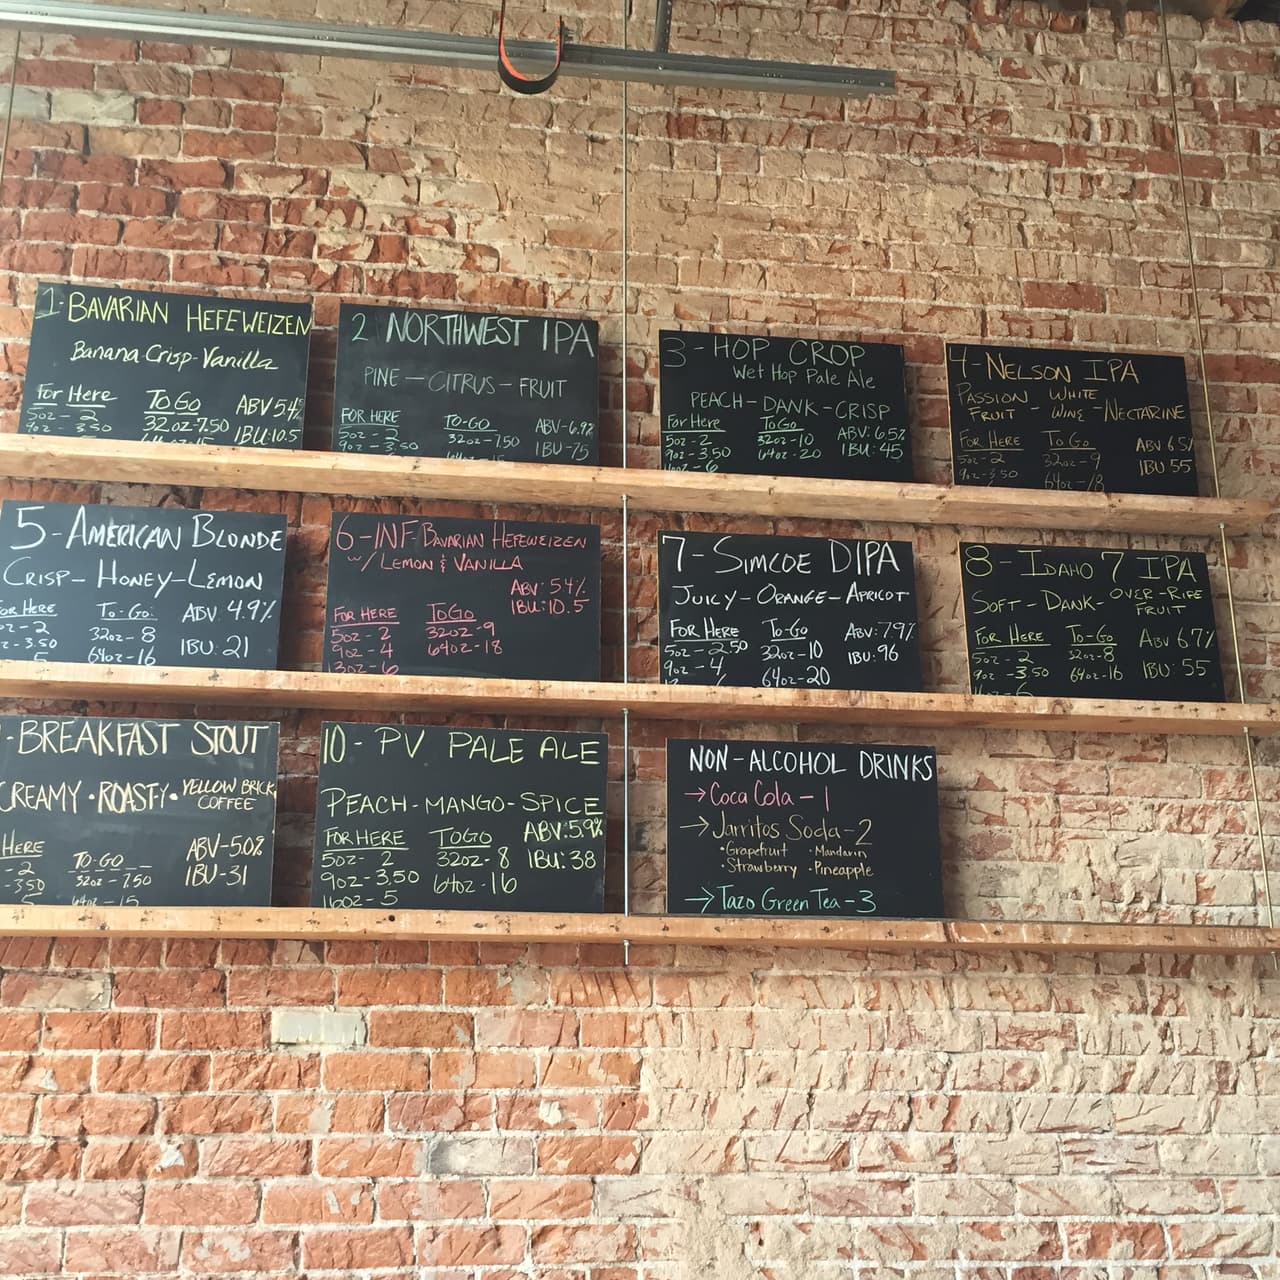 1-BAVARIAN HEFEWEIZEN
Banana-Crisp-Vanilla
For Here
5oz-2
9oz-3.50
To Go
32oz-7.50
64oz-15
ABV 5.4%
IBU:10.5
2 NORTHWEST IPA
PINE-CITRUS-FRUIT
FOR HERE
5oz-2
9oz-3.50
TO-GO
32oz-7.50
64oz-15
ABV-6.9%
IBU-75
3-HOP CROP
Wet Hop Pale Ale
PEACH-DANK-CRISP
For Here
5oz-2
9oz-3.50
16oz-6
To Go
32oz-10
64oz-20
ABV: 6.5%
IBU: 45
4-NELSON IPA
PASSION FRUIT - WHITE WINE - NECTARINE
FOR HERE
5oz-2
9oz-3.50
To Go
32oz-9
64oz-18
ABV 6.5%
IBU 55
5-AMERICAN BLONDE
CRISP-HONEY-LEMON
FOR HERE
oz-2
oz-3.50
5
To-Go:
32oz-8
64oz-16
ABV 4.9%
IBU:21
6-INF-BAVARIAN HEFEWEIZEN
w/ LEMON & VANILLA
FOR HERE
5oz-2
9oz-4
13oz-6
ToGo
32oz-9
64oz-18
ABV: 5.4%
IBU:10.5
7-SIMCOE DIPA
JUICY-ORANGE-APRICOT
FOR HERE
5oz-2.50
9oz-4
To-Go
32oz-10
64oz-20
ABV:7.9%
IBU:96
8-IDAHO 7 IPA
SOFT-DANK-OVER-RIPE FRUIT
FOR HERE
5oz-2
9oz-3.50
16oz-6
To-Go
32oz-8
64oz-16
ABV 6.7%
IBU:55
-BREAKFAST STOUT
CREAMY•ROASTY•YELLOW BRICK COFFEE
HERE
-2
-3.50
5
TO-GO
32oz-7.50
64oz-15
ABV-5.0%
IBU-31
10-PV PALE ALE
PEACH-MANGO-SPICE
FOR HERE
5oz-2
9oz-3.50
16oz-5
TOGO
32oz-8
64oz-16
ABV:5.9%
IBU:38
NON-ALCOHOL DRINKS
→Coca Cola-1
→Jarritos Soda-2
•Grapefruit •Mandarin
•Strawberry •Pineapple
→Tazo Green Tea-3